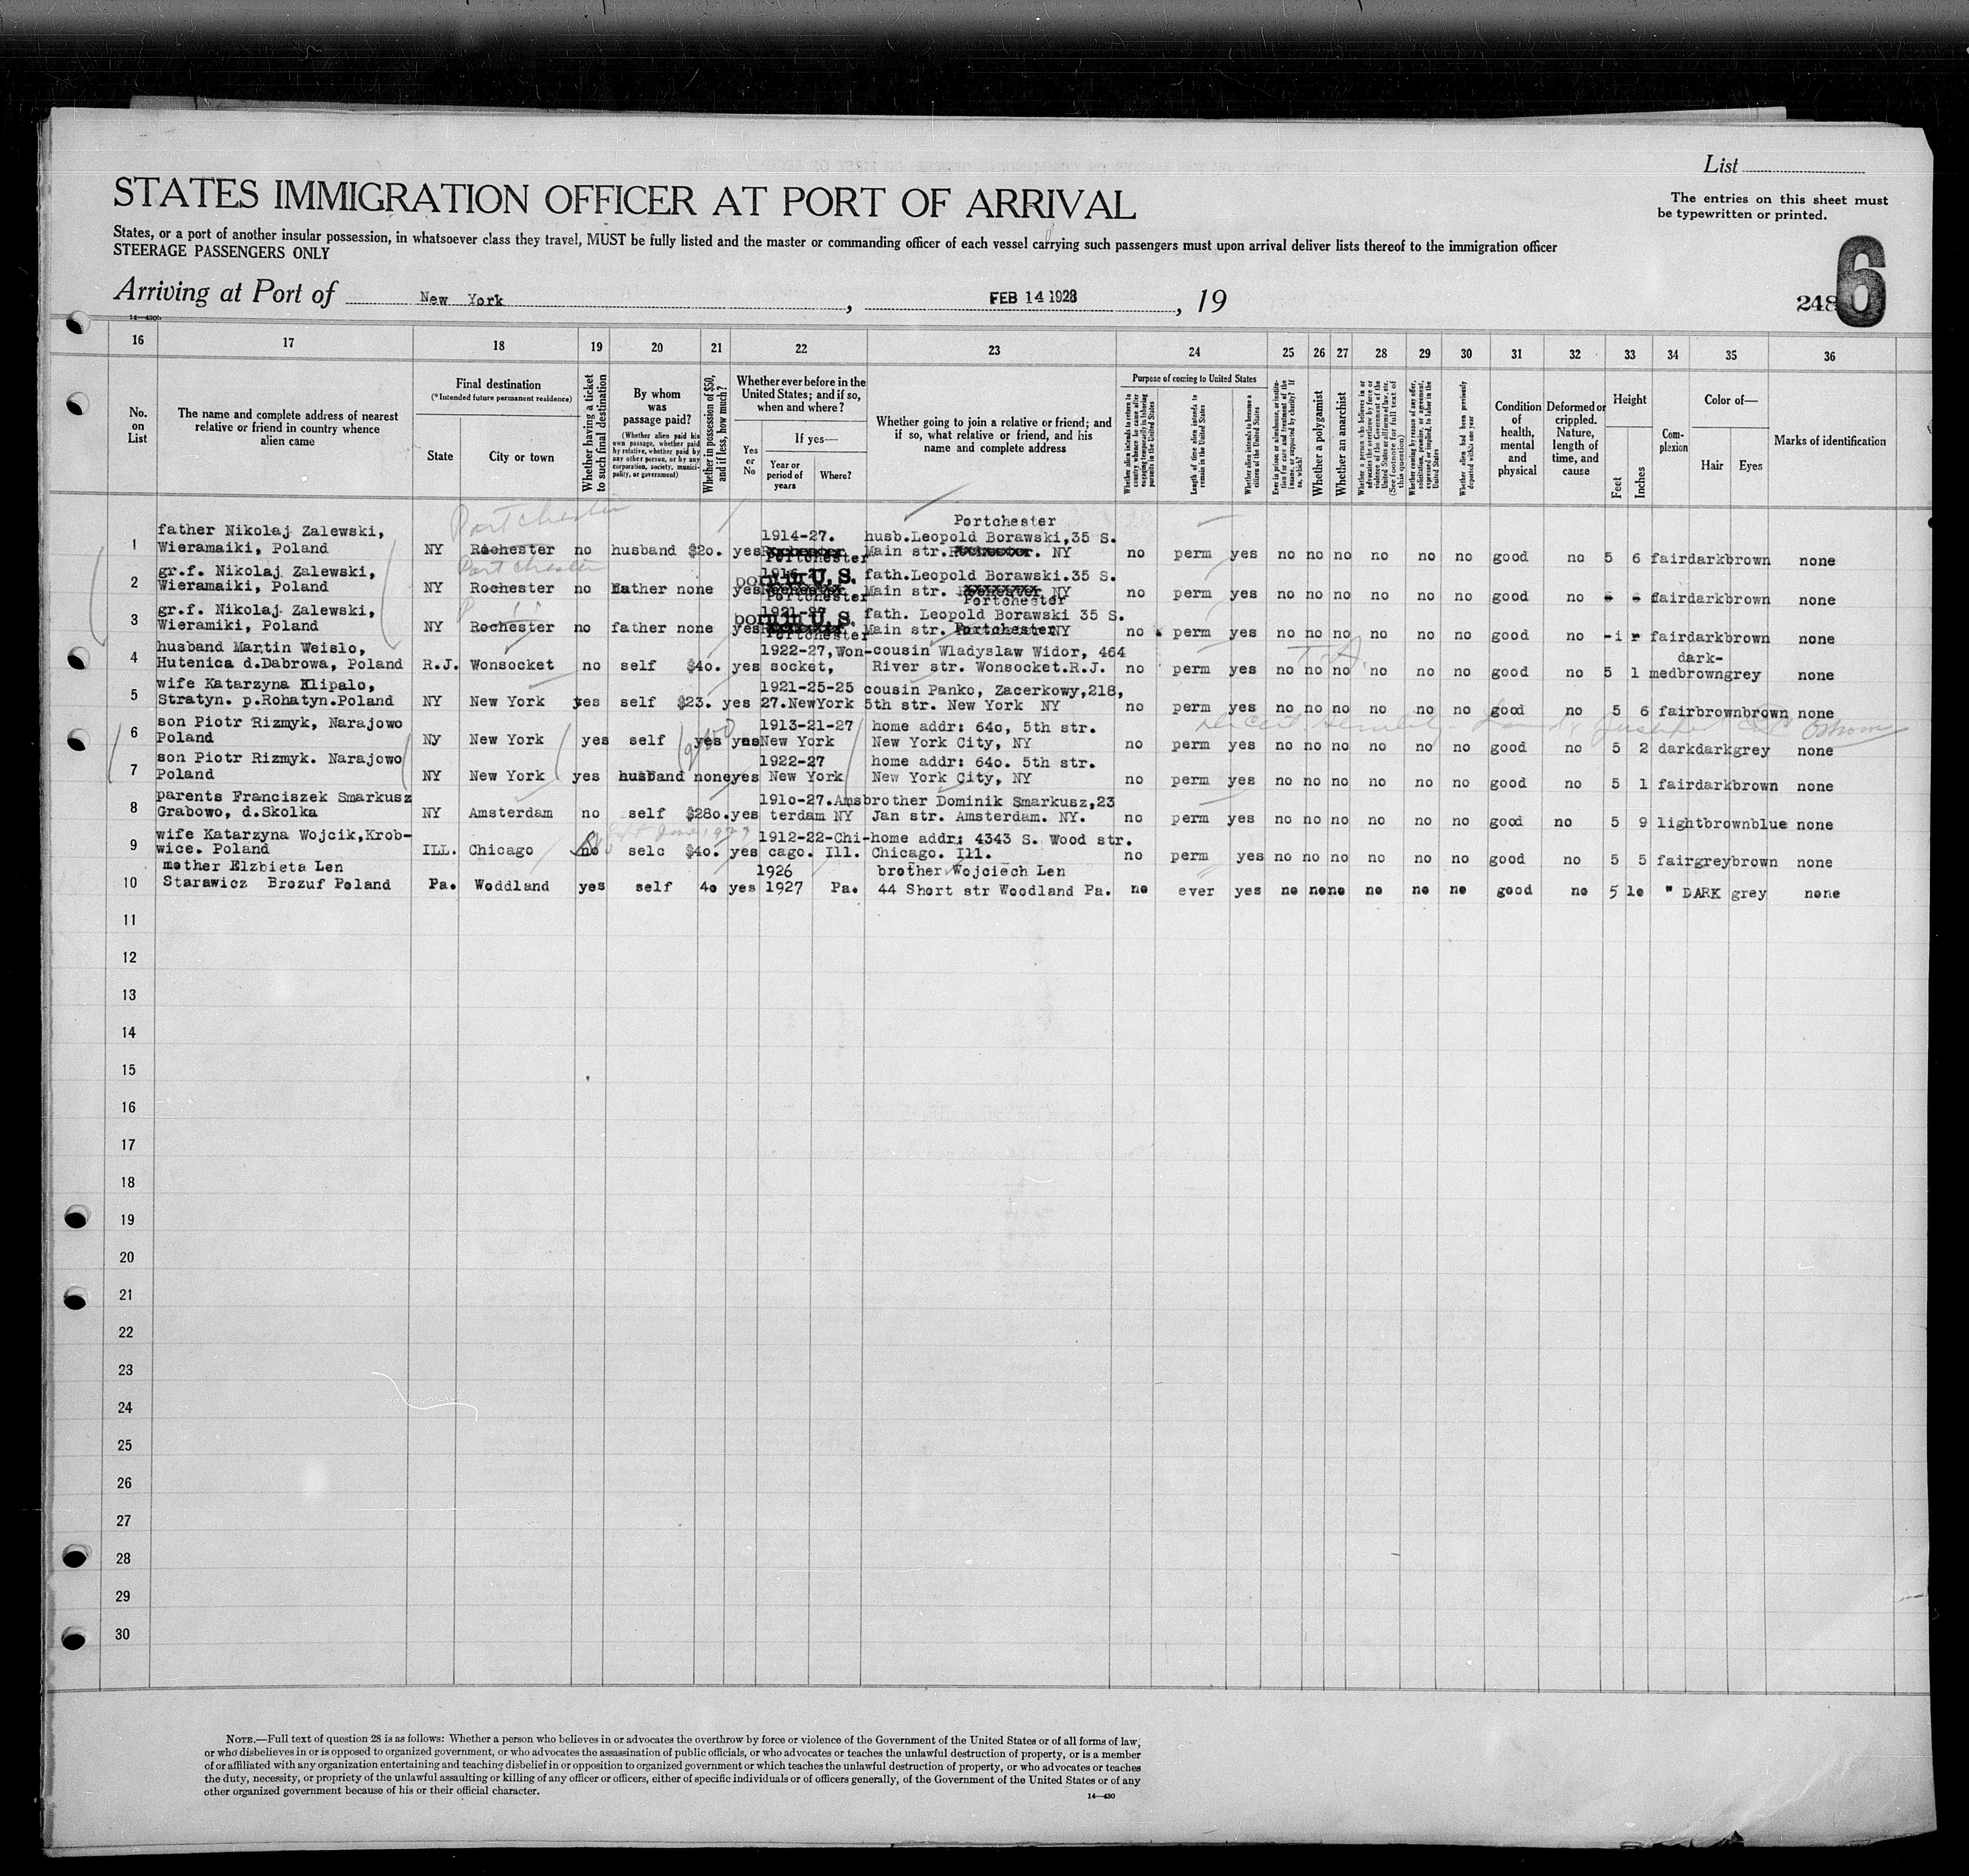 List
STATES IMMIGRATION OFFICER AT PORT OF ARRIVAL
The entries on this sheet must
be typewritten or printed.
States, or a port of another insular possession, in whatsoever class they travel, MUST be fully listed and the master or commanding officer of each vessel carrying such passengers must upon arrival deliver lists thereof to the immigration officer
STEERAGE PASSENGERS ONLY
6
Arriving at Port of New York, FEB 14 1928, 19
248
14—430b
16 17 18 19 20 21 22 23 24 25 26 27 28 29 30 31 32 33 34 35 36
No. on List
The name and complete address of nearest relative or friend in country whence alien came
Final destination
(*Intended future permanent residence)
State
City or town
Whether having a ticket to such final destination
By whom was passage paid?
(Whether alien paid his own passage, whether paid by relative, whether paid by any other person, or by any corporation, society, municipality, or government)
Whether in possession of $50, and if less, how much?
Whether ever before in the United States; and if so, when and where?
Yes or No
If yes—
Year or period of years
Where?
Whether going to join a relative or friend; and if so, what relative or friend, and his name and complete address
Purpose of coming to United States
Whether alien intends to return to country whence he came after engaging temporarily in laboring pursuits in the United States
Length of time alien intends to remain in the United States
Whether alien intends to become a citizen of the United States
Ever in prison or almshouse, or institution for care and treatment of the insane, or supported by charity? If so, which?
Whether a polygamist
Whether an anarchist
Whether a person who believes in or advocates the overthrow by force or violence of the Government of the United States or all forms of law, etc. (See footnote for full text of this question)
Whether coming by reason of any offer, solicitation, promise, or agreement, expressed or implied, to labor in the United States
Whether alien had been previously deported within one year
Condition of health, mental and physical
Deformed or crippled. Nature, length of time, and cause
Height
Feet
Inches
Complexion
Color of—
Hair
Eyes
Marks of identification
Portchester
Portchester
1 father Nikolaj Zalewski, 1914-27. husb.Leopold Borawski,35 S.
Wieramaiki, Poland NY Rochester no husband $2o. yes Main str. NY no perm yes no no no no no no good no 5 6 fair dark brown none
Portchester
Portchester
2 gr.f. Nikolaj Zalewski, born in U. S. fath.Leopold Borawski.35 S.
Wieramaiki, Poland NY Rochester no father none yes Main str. NY no perm yes no no no no no no good no fair dark brown none
Portchester Portchester
3 gr.f. Nikolaj Zalewski, 1921-27 born in U. S. fath. Leopold Borawski 35 S.
Wieramiki, Poland NY Rochester no father none yes Main str. Portchester NY no perm yes no no no no no no good no fair dark brown none
Portchester
4 husband Martin Weislo, 1922-27,Won- cousin Wladyslaw Widor, 464 dark-
Hutenica d.Dabrowa, Poland R.J. Wonsocket no self $4o. yes socket, River str. Wonsocket.R.J. no perm yes no no no no no no good no 5 1 med brown grey none
5 wife Katarzyna Klipalo, 1921-25-25 cousin Panko, Zacerkowy,218,
Stratyn. p.Rohatyn.Poland NY New York yes self $23. yes 27.NewYork 5th str. New York NY no perm yes no no no no no no good no 5 6 fair brown brown none
6 son Piotr Rizmyk, Narajowo 1913-21-27 home addr: 64o, 5th str.
Poland Ny New York yes self yes yes New York New York City, NY no perm yes no no no no no no good no 5 2 dark dark grey none
7 son Piotr Rizmyk. Narajowo 1922-27 home addr: 64o. 5th str.
Poland NY New York yes husband none yes New York New York City, NY no perm yes no no no no no no good no 5 1 fair dark brown none
8 parents Franciszek Smarkusz 191o-27.Ams brother Dominik Smarkusz,23
Grabowo, d.Skolka NY Amsterdam no self $28o. yes terdam NY Jan str. Amsterdam. NY. no perm yes no no no no no no good no 5 9 light brown blue none
9 wife Katarzyna Wojcik,Krob- 1912-22-Chi- home addr: 4343 S. Wood str.
wice. Poland ILL. Chicago no selc $4o. yes cago. Ill. Chicago. Ill. no perm yes no no no no no no good no 5 5 fair grey brown none
10 mother Elzbieta Len 1926 brother Wojciech Len
Starawicz Brozuf Poland Pa. Woddland yes self 4o yes 1927 Pa. 44 Short str Woodland Pa. no ever yes no no no no no no good no 5 1o " DARK grey none
11
12
13
14
15
16
17
18
19
20
21
22
23
24
25
26
27
28
29
30
NOTE.—Full text of question 28 is as follows: Whether a person who believes in or advocates the overthrow by force or violence of the Government of the United States or of all forms of law,
or who disbelieves in or is opposed to organized government, or who advocates the assassination of public officials, or who advocates or teaches the unlawful destruction of property, or is a member
of or affiliated with any organization entertaining and teaching disbelief in or opposition to organized government or which teaches the unlawful destruction of property, or who advocates or teaches
the duty, necessity, or propriety of the unlawful assaulting or killing of any officer or officers, either of specific individuals or of officers generally, of the Government of the United States or of any
other organized government because of his or their official character.
14—430